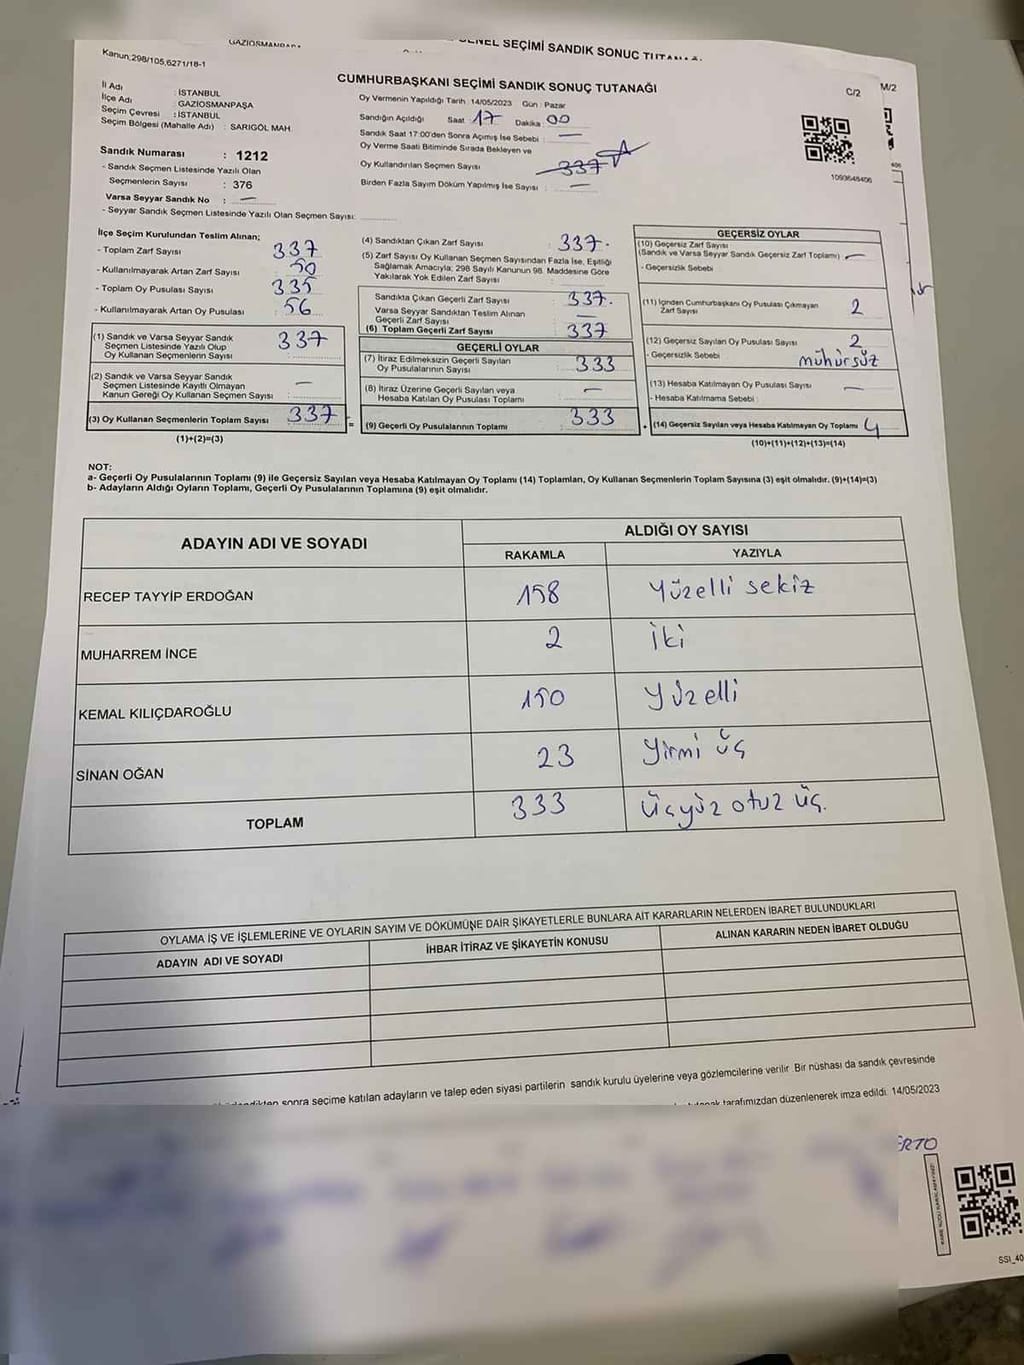 GAZİOSMANPAŞA
GENEL SEÇİMİ SANDIK SONUÇ TUTANAĞI
Kanun:298/105,6271/18-1
CUMHURBAŞKANI SEÇİMİ SANDIK SONUÇ TUTANAĞI
C/2
M/2
İl Adı : İSTANBUL
İlçe Adı : GAZİOSMANPAŞA
Seçim Çevresi : İSTANBUL
Seçim Bölgesi (Mahalle Adı) : SARIGÖL MAH.
Sandık Numarası : 1212
- Sandık Seçmen Listesinde Yazılı Olan
Seçmenlerin Sayısı : 376
Varsa Seyyar Sandık No : —
- Seyyar Sandık Seçmen Listesinde Yazılı Olan Seçmen Sayısı:
Oy Vermenin Yapıldığı Tarih :14/05/2023 Gün : Pazar
Sandığın Açıldığı Saat 17 Dakika 00
Sandık Saat 17:00'den Sonra Açımış İse Sebebi : —
Oy Verme Saati Bitiminde Sırada Bekleyen ve
Oy Kullandırılan Seçmen Sayısı : 337
Birden Fazla Sayım Döküm Yapılmış İse Sayısı : —
1093648406
İlçe Seçim Kurulundan Teslim Alınan;
- Toplam Zarf Sayısı : 337
- Kullanılmayarak Artan Zarf Sayısı : 50
- Toplam Oy Pusulası Sayısı : 335
- Kullanılmayarak Artan Oy Pusulası : 56
(1) Sandık ve Varsa Seyyar Sandık
Seçmen Listesinde Yazılı Olup
Oy Kullanan Seçmenlerin Sayısı : 337
(2) Sandık ve Varsa Seyyar Sandık
Seçmen Listesinde Kayıtlı Olmayan
Kanun Gereği Oy Kullanan Seçmen Sayısı : —
(3) Oy Kullanan Seçmenlerin Toplam Sayısı : 337
(1)+(2)=(3)
=
(4) Sandıktan Çıkan Zarf Sayısı : 337.
(5) Zarf Sayısı Oy Kullanan Seçmen Sayısından Fazla İse, Eşitliği
Sağlamak Amacıyla; 298 Sayılı Kanunun 98. Maddesine Göre
Yakılarak Yok Edilen Zarf Sayısı :
Sandıkta Çıkan Geçerli Zarf Sayısı : 337.
Varsa Seyyar Sandıktan Teslim Alınan
Geçerli Zarf Sayısı : —
(6) Toplam Geçerli Zarf Sayısı : 337
GEÇERLİ OYLAR
(7) İtiraz Edilmeksizin Geçerli Sayılan
Oy Pusulalarının Sayısı : 333
(8) İtiraz Üzerine Geçerli Sayılan veya
Hesaba Katılan Oy Pusulası Toplamı : —
(9) Geçerli Oy Pusulalarının Toplamı : 333
+
GEÇERSİZ OYLAR
(10) Geçersiz Zarf Sayısı
(Sandık ve Varsa Seyyar Sandık Geçersiz Zarf Toplamı) : —
- Geçersizlik Sebebi :
(11) İçinden Cumhurbaşkanı Oy Pusulası Çıkmayan
Zarf Sayısı 2
(12) Geçersiz Sayılan Oy Pusulası Sayısı : 2
- Geçersizlik Sebebi : mühürsüz
(13) Hesaba Katılmayan Oy Pusulası Sayısı : —
- Hesaba Katılmama Sebebi :
(14) Geçersiz Sayılan veya Hesaba Katılmayan Oy Toplamı : 4
(10)+(11)+(12)+(13)=(14)
NOT:
a- Geçerli Oy Pusulalarının Toplamı (9) ile Geçersiz Sayılan veya Hesaba Katılmayan Oy Toplamı (14) Toplamları, Oy Kullanan Seçmenlerin Toplam Sayısına (3) eşit olmalıdır. (9)+(14)=(3)
b- Adayların Aldığı Oyların Toplamı, Geçerli Oy Pusulalarının Toplamına (9) eşit olmalıdır.
ADAYIN ADI VE SOYADI
ALDIĞI OY SAYISI
RAKAMLA YAZIYLA
RECEP TAYYİP ERDOĞAN 158 Yüzelli sekiz
MUHARREM İNCE 2 İki
KEMAL KILIÇDAROĞLU 150 Yüzelli
SİNAN OĞAN 23 Yirmi üç
TOPLAM 333 Üçyüz otuz üç.
OYLAMA İŞ VE İŞLEMLERİNE VE OYLARIN SAYIM VE DÖKÜMÜNE DAİR ŞİKAYETLERLE BUNLARA AİT KARARLARIN NELERDEN İBARET BULUNDUKLARI
ADAYIN ADI VE SOYADI İHBAR İTİRAZ VE ŞİKAYETİN KONUSU ALINAN KARARIN NEDEN İBARET OLDUĞU
sonra seçime katılan adayların ve talep eden siyasi partilerin sandık kurulu üyelerine veya gözlemcilerine verilir. Bir nüshası da sandık çevresinde
tarafımızdan düzenlenerek imza edildi. 14/05/2023
SSI_40